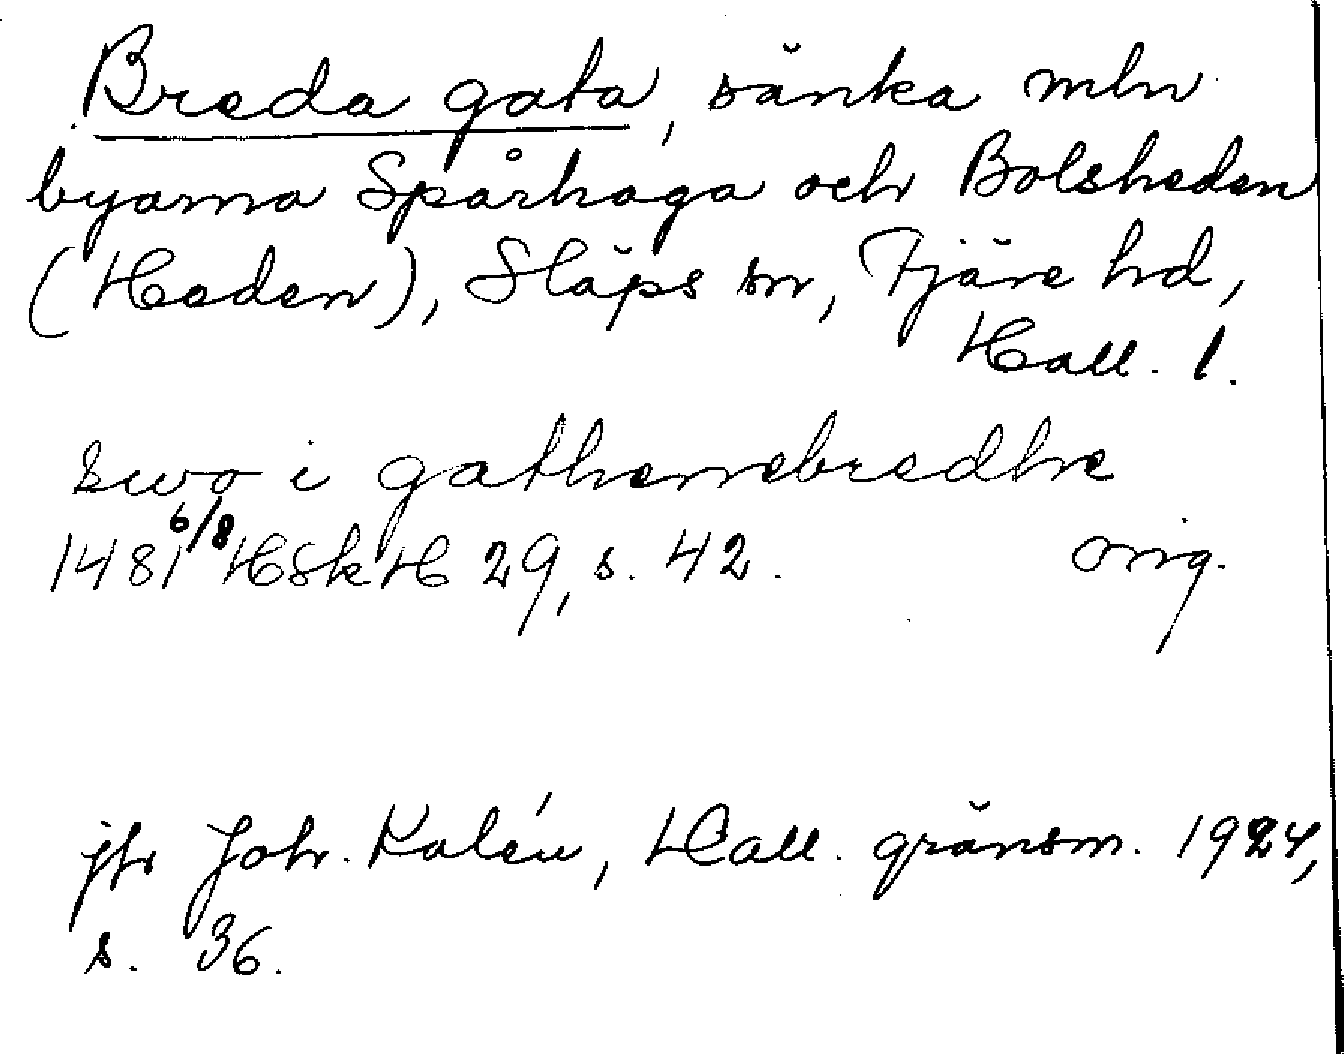 Breda gata, sänka mln
byarna Spårhaga och Bolsheden
(Heden), Släps sn, Fjäre hd,
Hall. l.
swo i gathenebredhe
1481 6/8 HSkH 29, s. 42. orig.
jfr Joh. Kalén, Hall. gränsm. 1924,
s. 36.